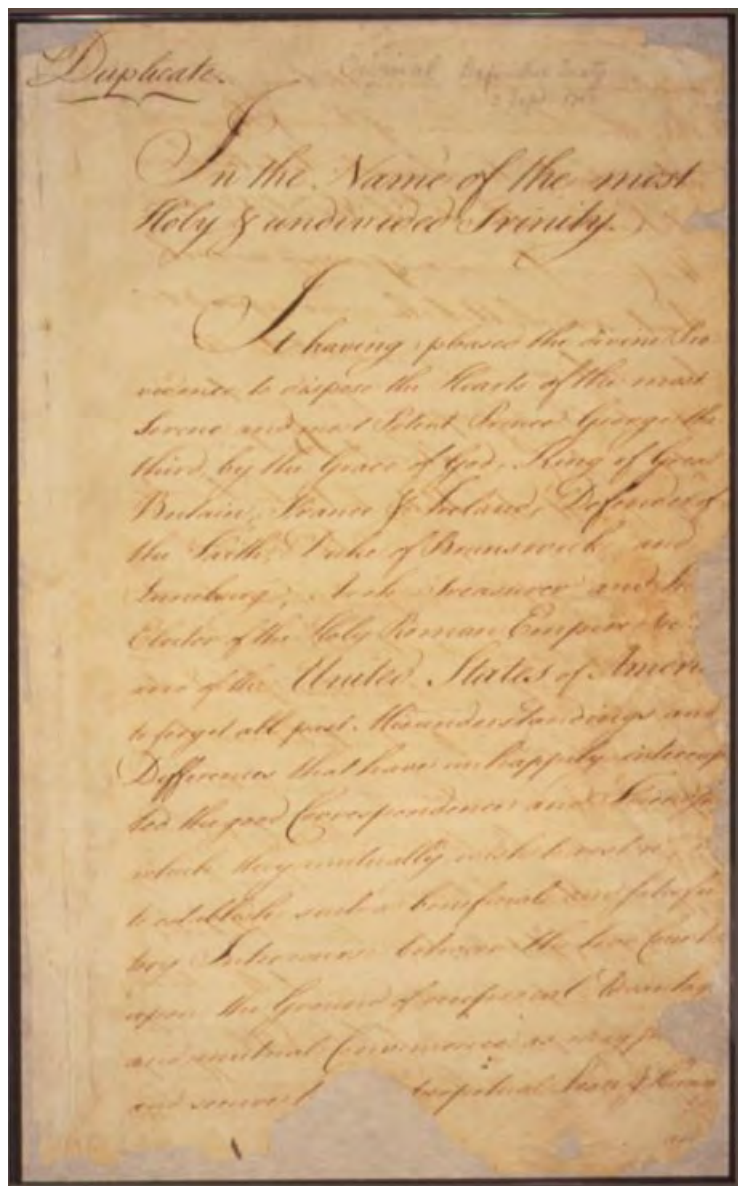 Duplicate.
Original Definitive Treaty
Sept. 
In the Name of the most
Holy & undivided Trinity.
It having pleased the divine Pro
vidence to dispose the Hearts of the most
Serene and most Potent Prince George the
third, by the Grace of God, King of Great
Britain, France & Ireland, Defender of
the Faith, Duke of Brunswick and
Lunebourg, Arch Treasurer and
Elector of the Holy Roman Empire &c.
and of the United States of Ameri
to forget all past Misunderstandings and
Differences that have unhappily interrup
ted the good Correspondence and Friendship
which they mutually wish to restore;
to establish such a beneficial and satisfac
tory Intercourse between the two Count
upon the Ground of reciprocal Advantag
and mutual Convenience as may
and secure perpetual Peace & Harm